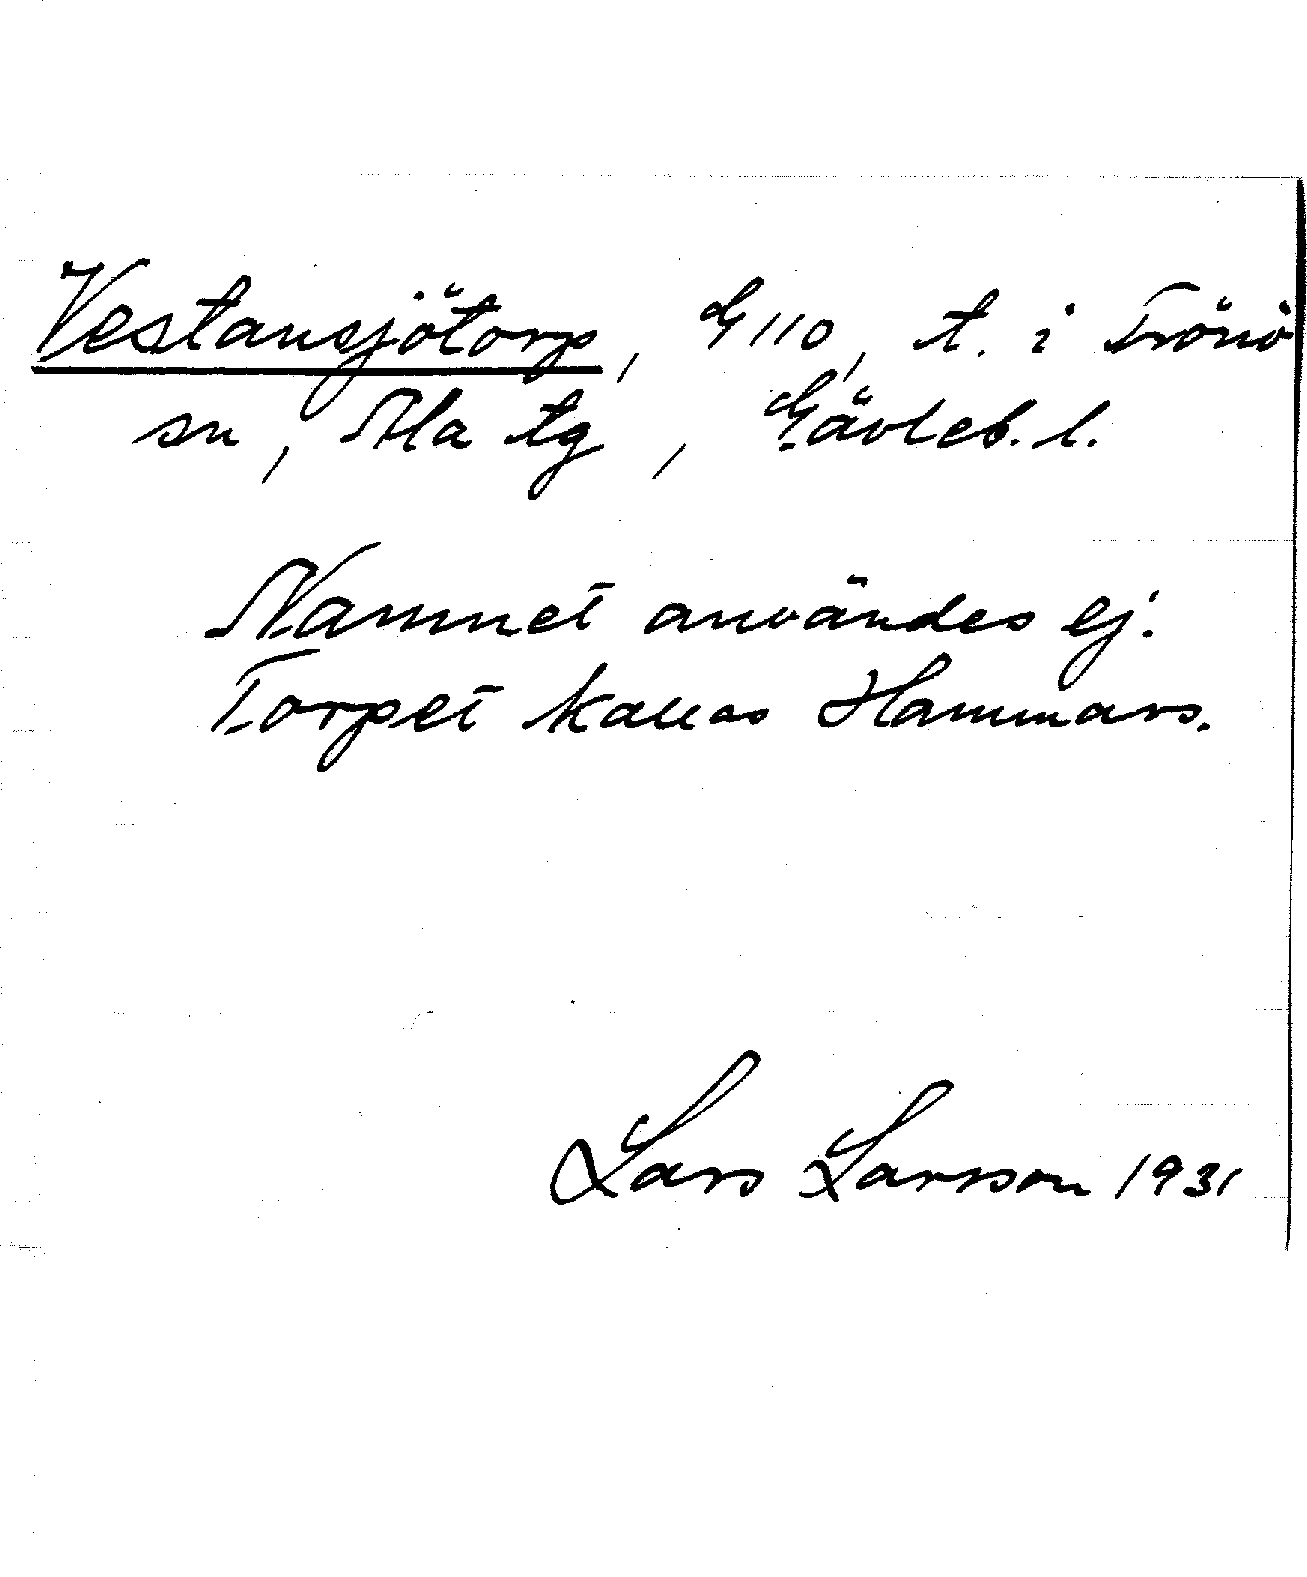 Vestansjötorp, G 110, t. i Trönö
sn, Ala tg, Gävleb. l.
Namnet användes ej.
Torpet kallas Hammars.
Lars Larsson 1931